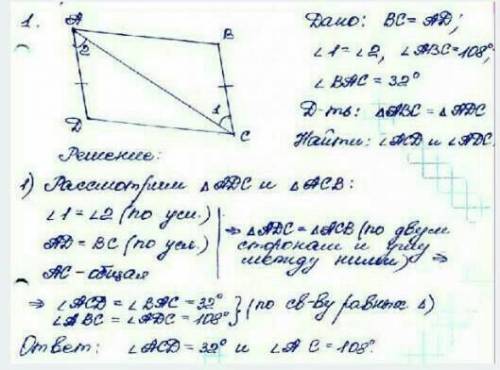 1.
A
B
2
1
D
C
Дано: BC = AD;
∠1 = ∠2, ∠ABC = 108°,
∠BAC = 32°
Д-ть: △ABC = △ADC
Найти: ∠ACD и ∠ADC.
Решение:
1) Рассмотрим △ADC и △ACB:
∠1 = ∠2 (по усл.)
AD = BC (по усл.)
AC - общая
⇒ △ADC = △ACB (по двум
сторонам и углу
между ними) ⇒
⇒ ∠ACD = ∠BAC = 32°
∠ABC = ∠ADC = 108° } (по св-ву равных △)
Ответ: ∠ACD = 32° и ∠A C = 108°.